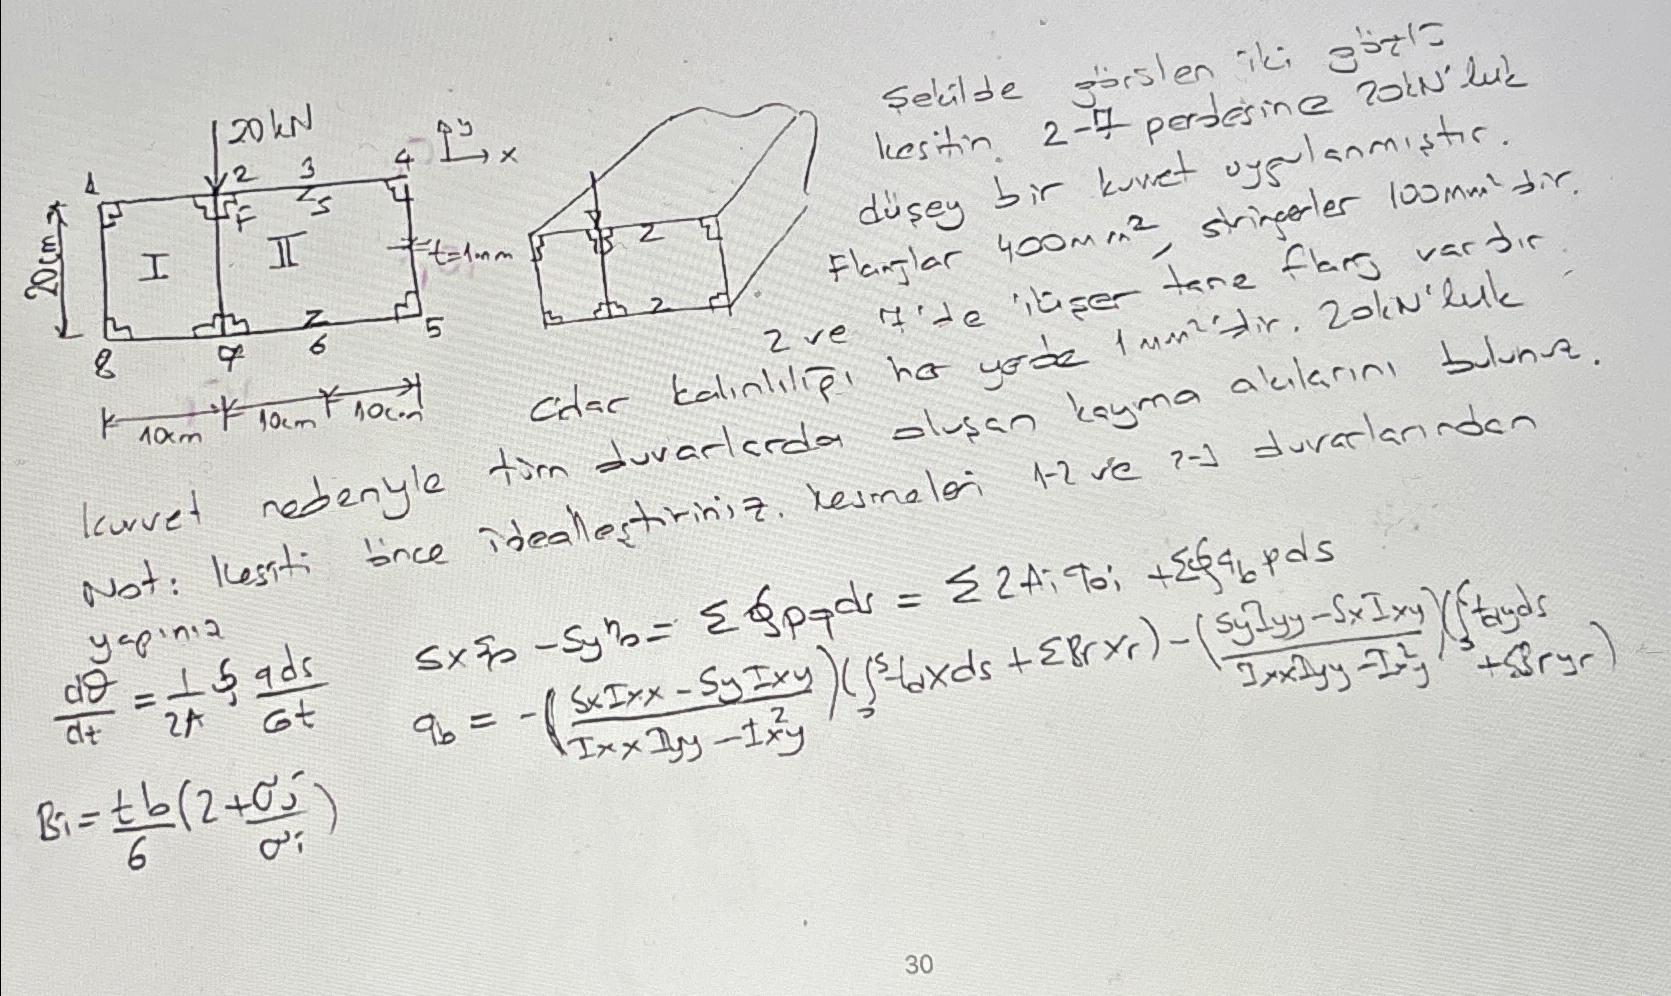 20 kN
y
x
1
2
3
4
F
S
20cm
I
II
t=1mm
8
7
6
5
10cm
10cm
10cm
Z
Z
Şekilde görülen iki gözlü
kesitin 2-7 perdesine 20kN'luk
düşey bir kuvvet uygulanmıştır.
Flanşlar 400mm², stringerler 100mm²dir.
2 ve 7'de ikişer tane flanş vardır.
Cidar kalınlılığı her yerde 1mm²'dir. 20kN'luk
kuvvet nedeniyle tüm duvarlarda oluşan kayma akılarını bulunuz.
Not: Kesiti önce idealleştiriniz. Kesmeleri 1-2 ve 2-3 duvarlarından
yapınız
Sxξ₀ - Syη₀ = Σ∮pqds = Σ2Aᵢq₀ᵢ + Σ∮q_b pds
dθ/dt = 1/2A ∮ qds/Gt
q_b = -((SxIxx - SyIxy)/(IxxIyy - I²xy))(∫₀ˢ t_d x ds + ΣBr xr) - ((SyIyy - SxIxy)/(IxxIyy - I²xy))(∫₀ˢ t_d y ds + ΣBr yr)
Bi = tb/6 (2 + σj/σi)
30